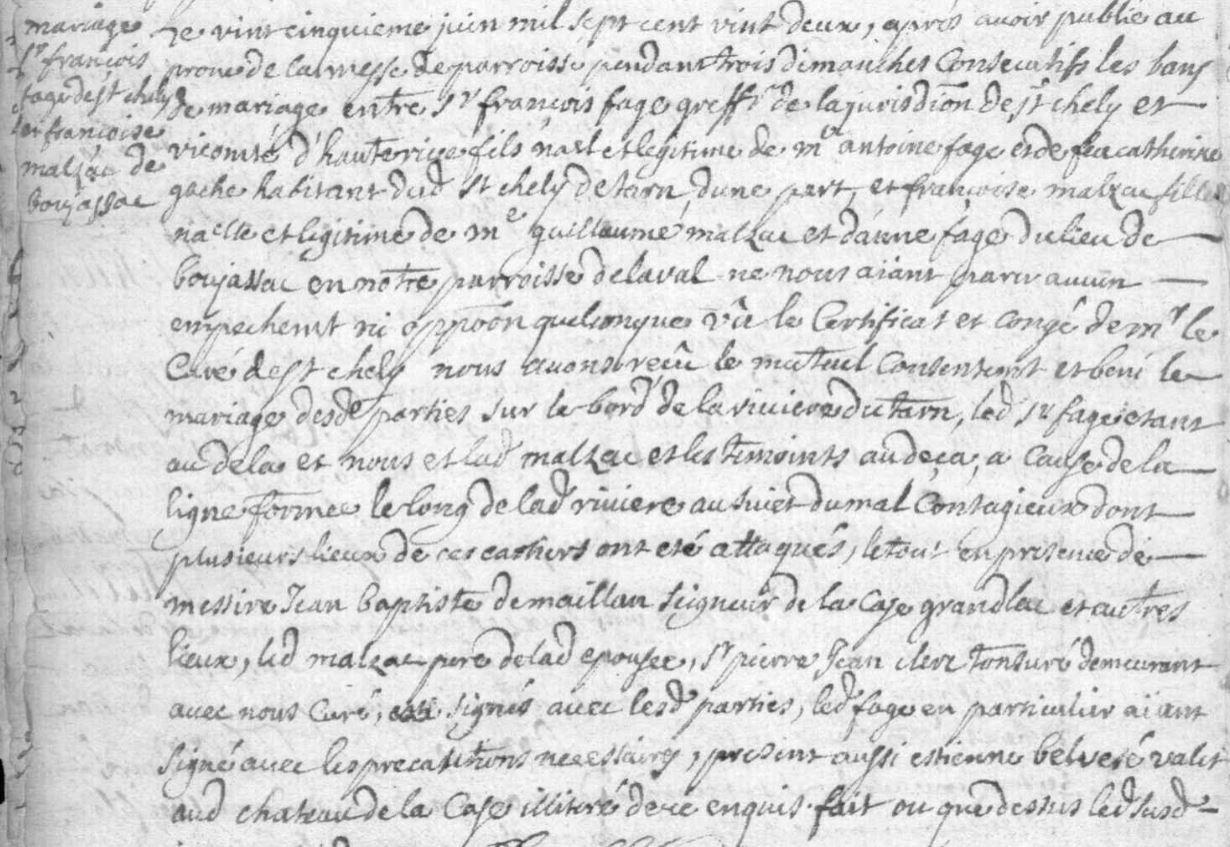 mariage
sr françois
fage de st chely
et françoise
malzac de
boujassac
Le vint cinquieme juin mil sept cent vint deux, aprés avoir publié au
prone de la messe de parroisse pendant trois dimanches Consecutifs les bans
de mariage entre sr françois fage greffr de la jurisdion de st chely et
vicomté d'hauterive fils natl et legitime de me antoine fage et de feu catherine
gache habitant dud st chely de tarn, dune part, et françoise malzac fille
nalle et legitime de me guillaume malzac et d'anne fage du lieu de
boujassac en notre parroisse de laval ne nous aiant paru aucun
empechemt ni oppoon quelconque vû le Certificat et Congé de mr le
Curé de st chely nous avons reçû le mutuel Consentemt et beni le
mariage desde parties sur le bord de la riviere du tarn, led sr fage etant
au dela et nous et lad malzac et les temoints au deça, a Cause de la
ligne formee le long de lad riviere au sujet du mal Contagieux dont
plusieurs lieux de ces cartiers ont eté attaqués, le tout en presence de
messire Jean baptiste de maillan seigneur de la Case grandlac et autres
lieux, led malzac pere de lad epousee, sr pierre Jean clerc tonsuré demeurant
avec nous Curé, signés avec lesd parties, led fage en particulier aiant
signé avec les precautions necessaires, present aussi estienne belveré valet
aud chateau de la Case illiteré de ce enquis. fait ou que dessus led susd